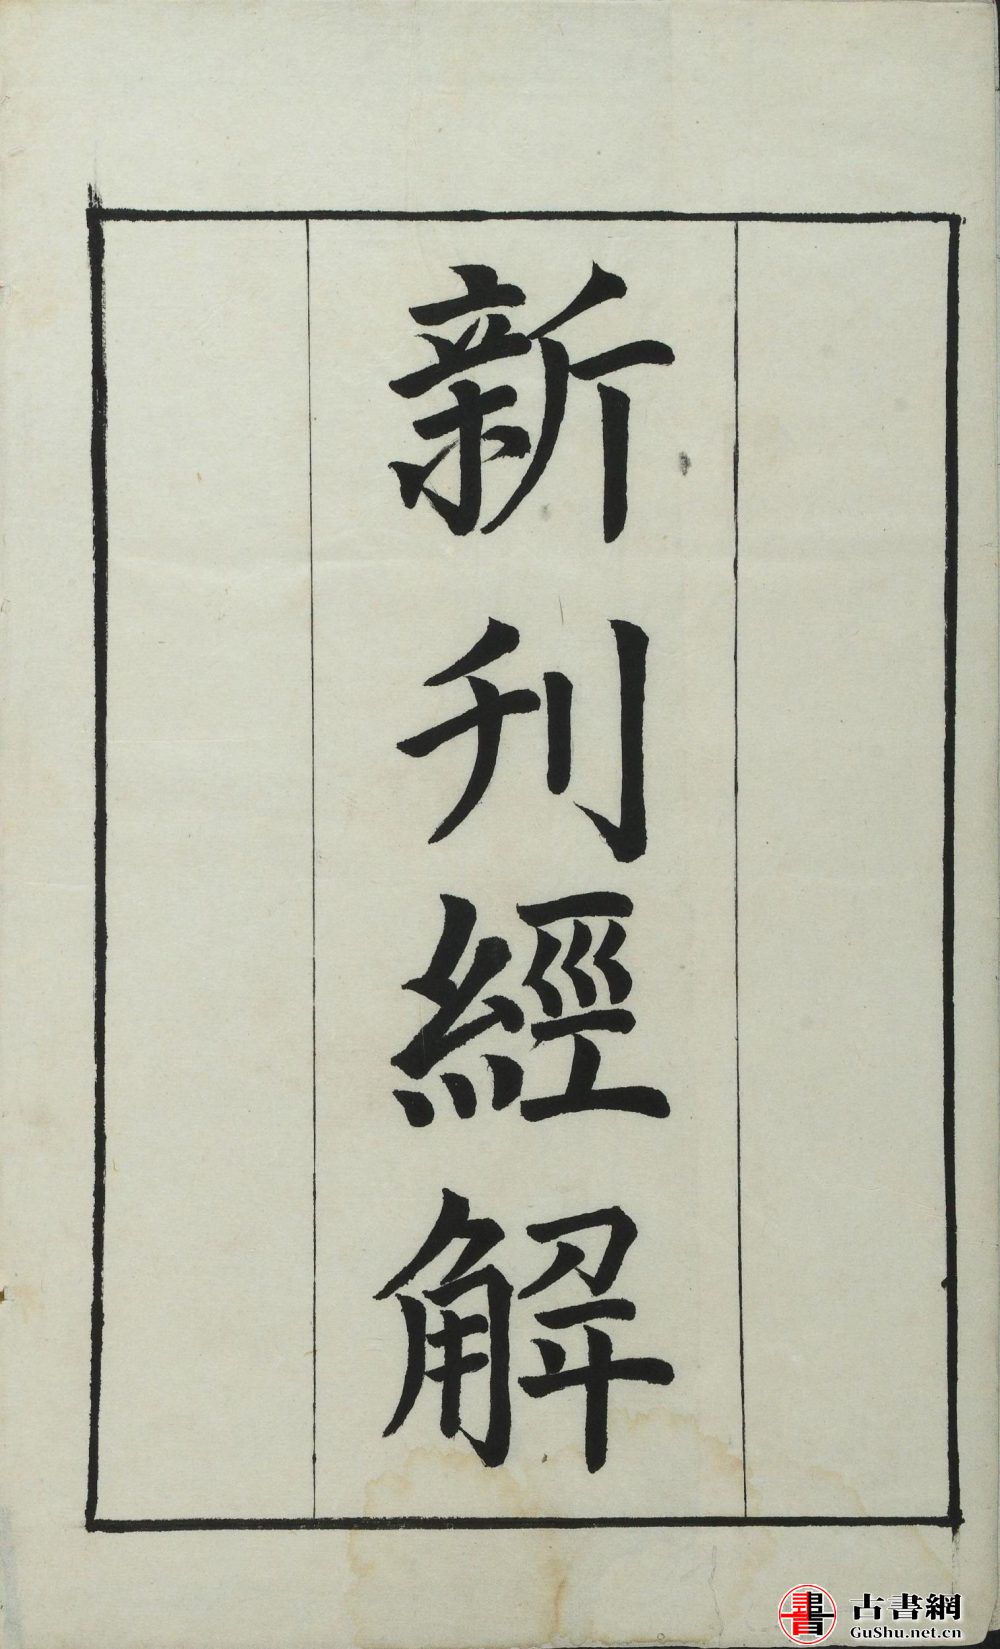 新刊經解
書
古書網
GuShu.net.cn